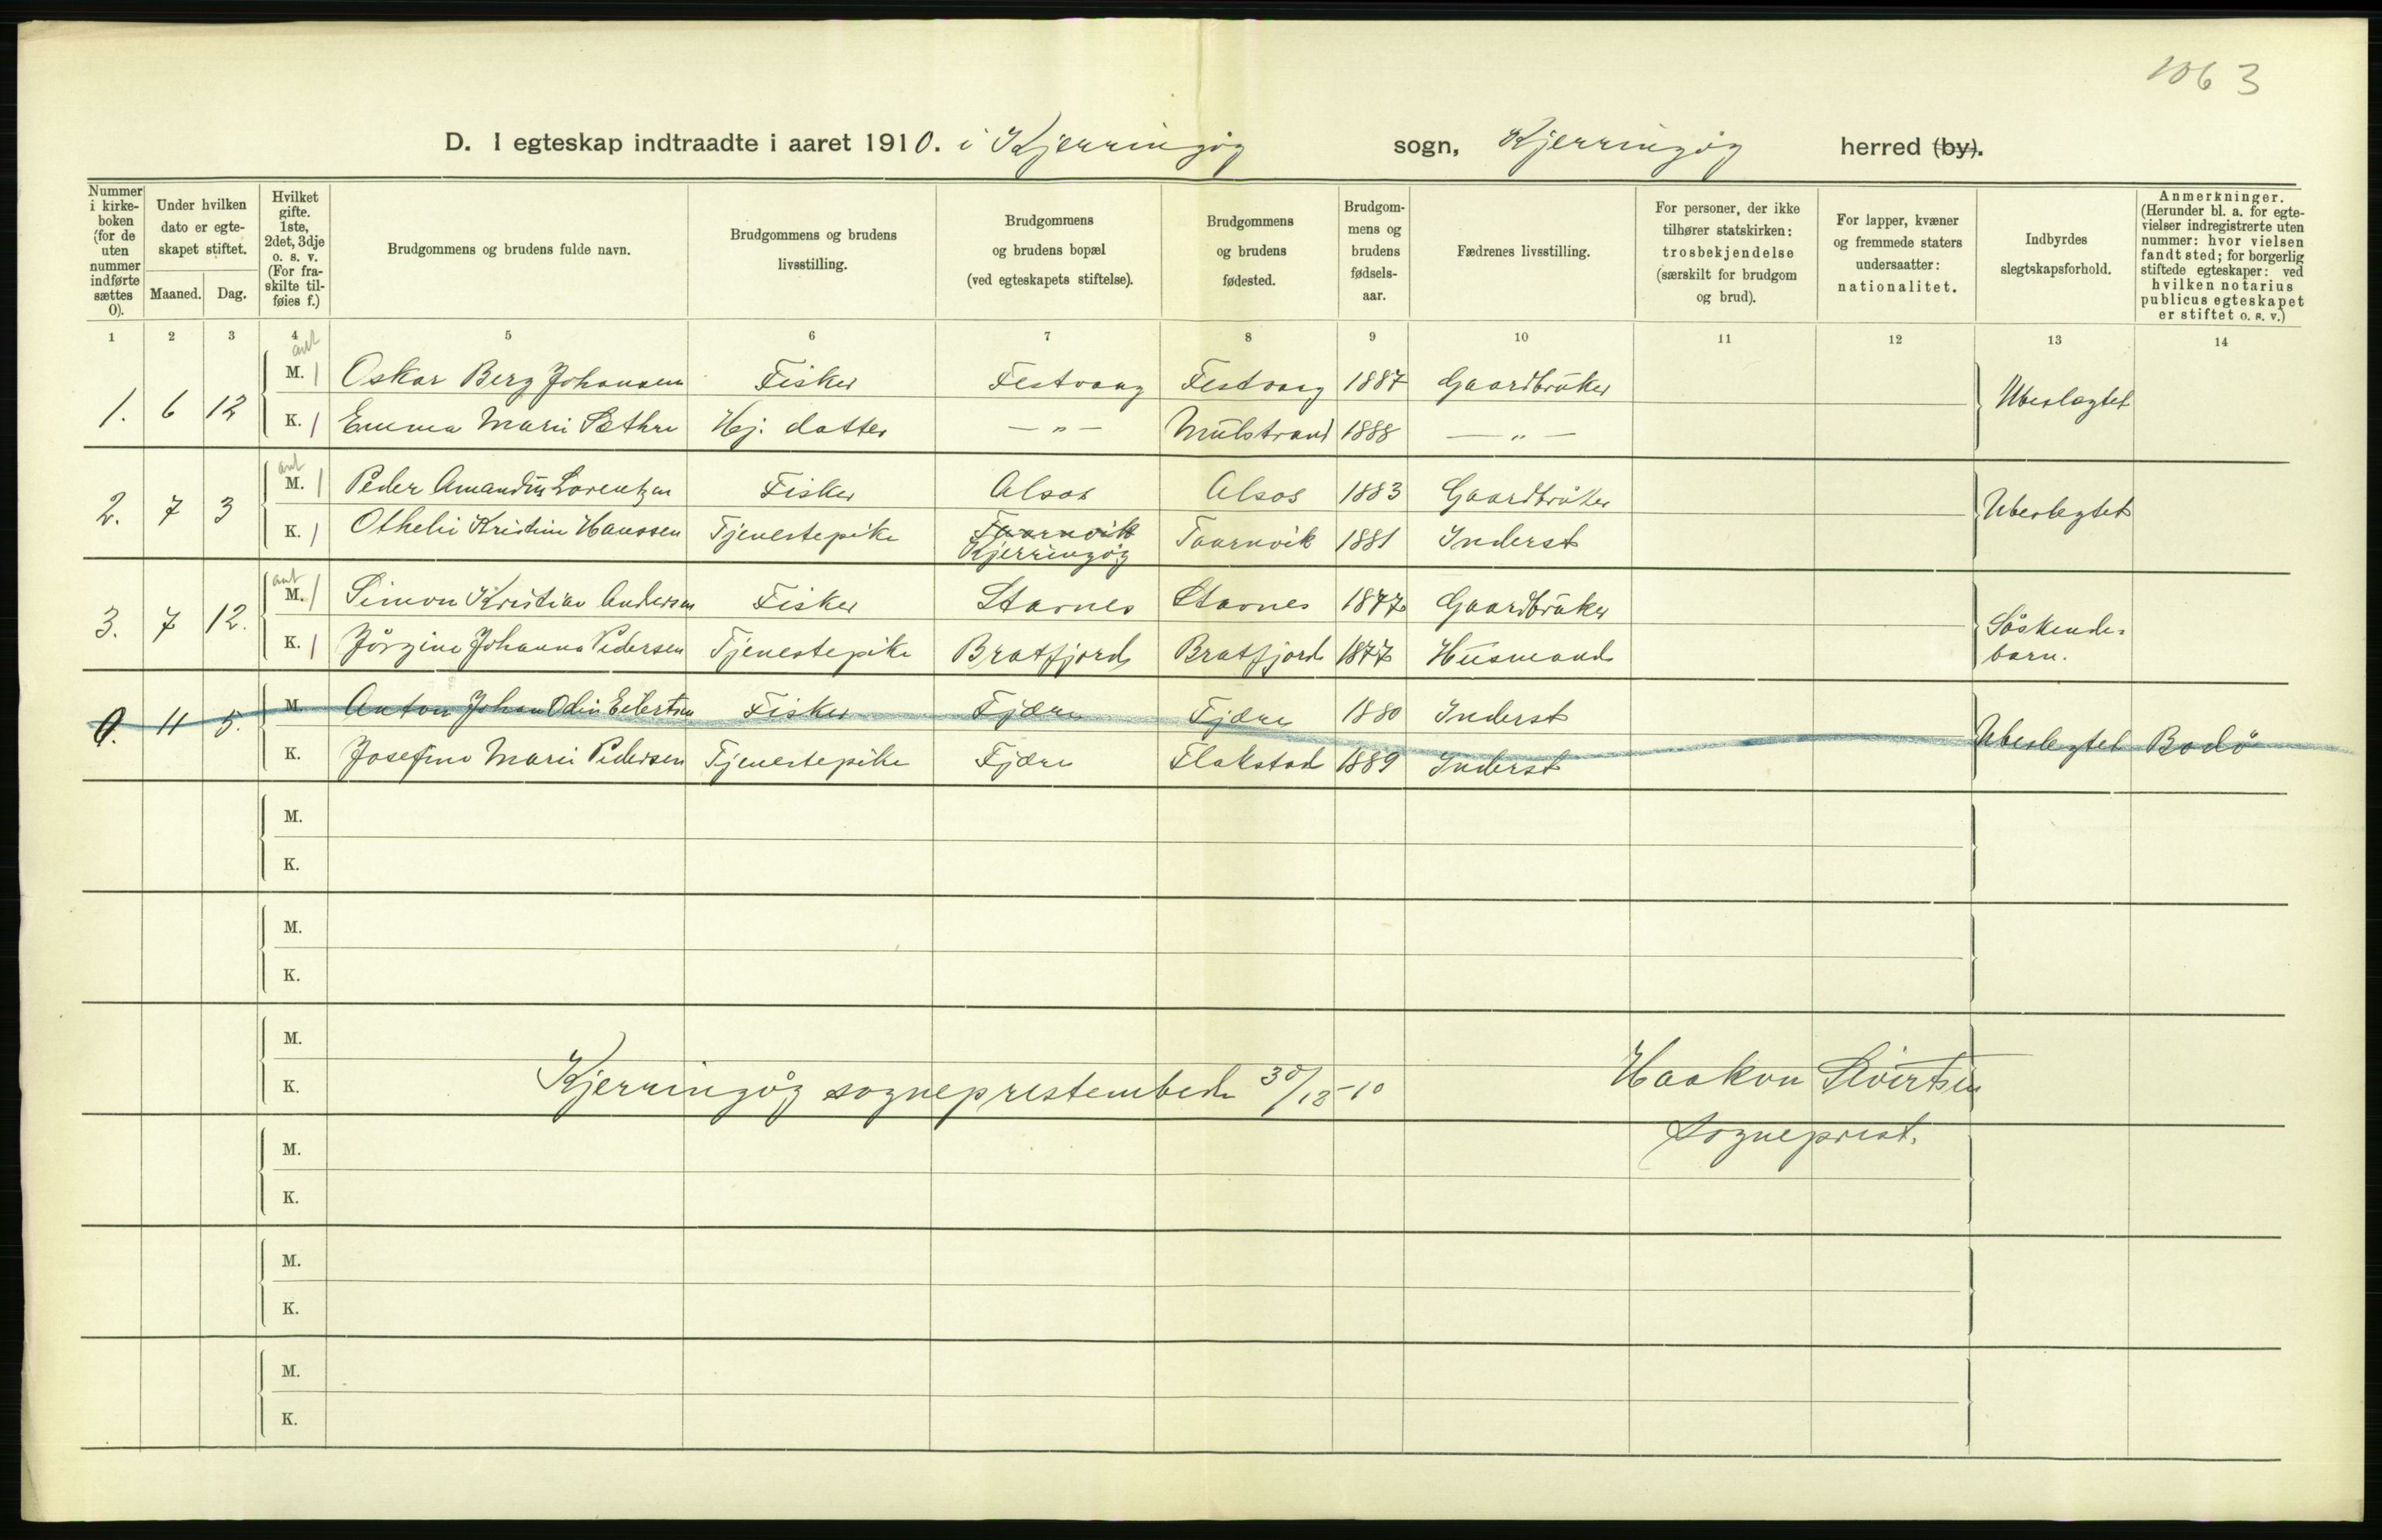 1063
D. I egteskap indtraadte i aaret 1910. i Kjerringøy sogn, Kjerringøy herred (by).
Nummer i kirkeboken (for de uten nummer indførte sættes 0).
Under hvilken dato er egteskapet stiftet.
Maaned. Dag.
Hvilket gifte. 1ste, 2det, 3dje o. s. v. (For fraskilte tilføies f.)
Brudgommens og brudens fulde navn.
Brudgommens og brudens livsstilling.
Brudgommens og brudens bopæl (ved egteskapets stiftelse).
Brudgommens og brudens fødested.
Brudgommens og brudens fødselsaar.
Fædrenes livsstilling.
For personer, der ikke tilhører statskirken: trosbekjendelse (særskilt for brudgom og brud).
For lapper, kvæner og fremmede staters undersaatter: nationalitet.
Indbyrdes slegtskapsforhold.
Anmerkninger. (Herunder bl. a. for egtevielser indregistrerte uten nummer: hvor vielsen fandt sted; for borgerlig stiftede egteskaper: ved hvilken notarius publicus egteskapet er stiftet o. s. v.)
1 2 3 4 5 6 7 8 9 10 11 12 13 14
ant
1. 6 12 M. 1 Oskar Berg Johansen Fisker Festvaag Festvaag 1887 Gaardbruker Ubeslegtet
K. 1 Emma Marie Sæthre Hj. datter — " — Mulstrand 1888 — " —
ant
2. 7 3 M. 1 Peder Amandus Lorentzen Fisker Alsos Alsos 1883 Gaardbruker Ubeslegtet
K. 1 Othelie Kristine Hanssen Tjenestepike Taarnvik Kjerringøy Taarnvik 1881 Inderst
ant
3. 7 12. M. 1 Simon Kristian Andersen Fisker Starnes Starnes 1877 Gaardbruker Søskendebarn.
K. 1 Jørgine Johanna Pedersen Tjenestepike Bratfjord Bratfjord 1877 Husmand
0. 11 5. M. Anton Johan Odin Eilertsen Fisker Fjære Fjære 1880 Inderst Ubeslegtet Bodø
K. Josefine Marie Pedersen Tjenestepike Fjære Flakstad 1889 Inderst
M.
K.
M.
K.
M.
K. Kjerringøy sogneprestembede 30/12-10 Haakon Sivertsen
sogneprest.
M.
K.
M.
K.
M.
K.